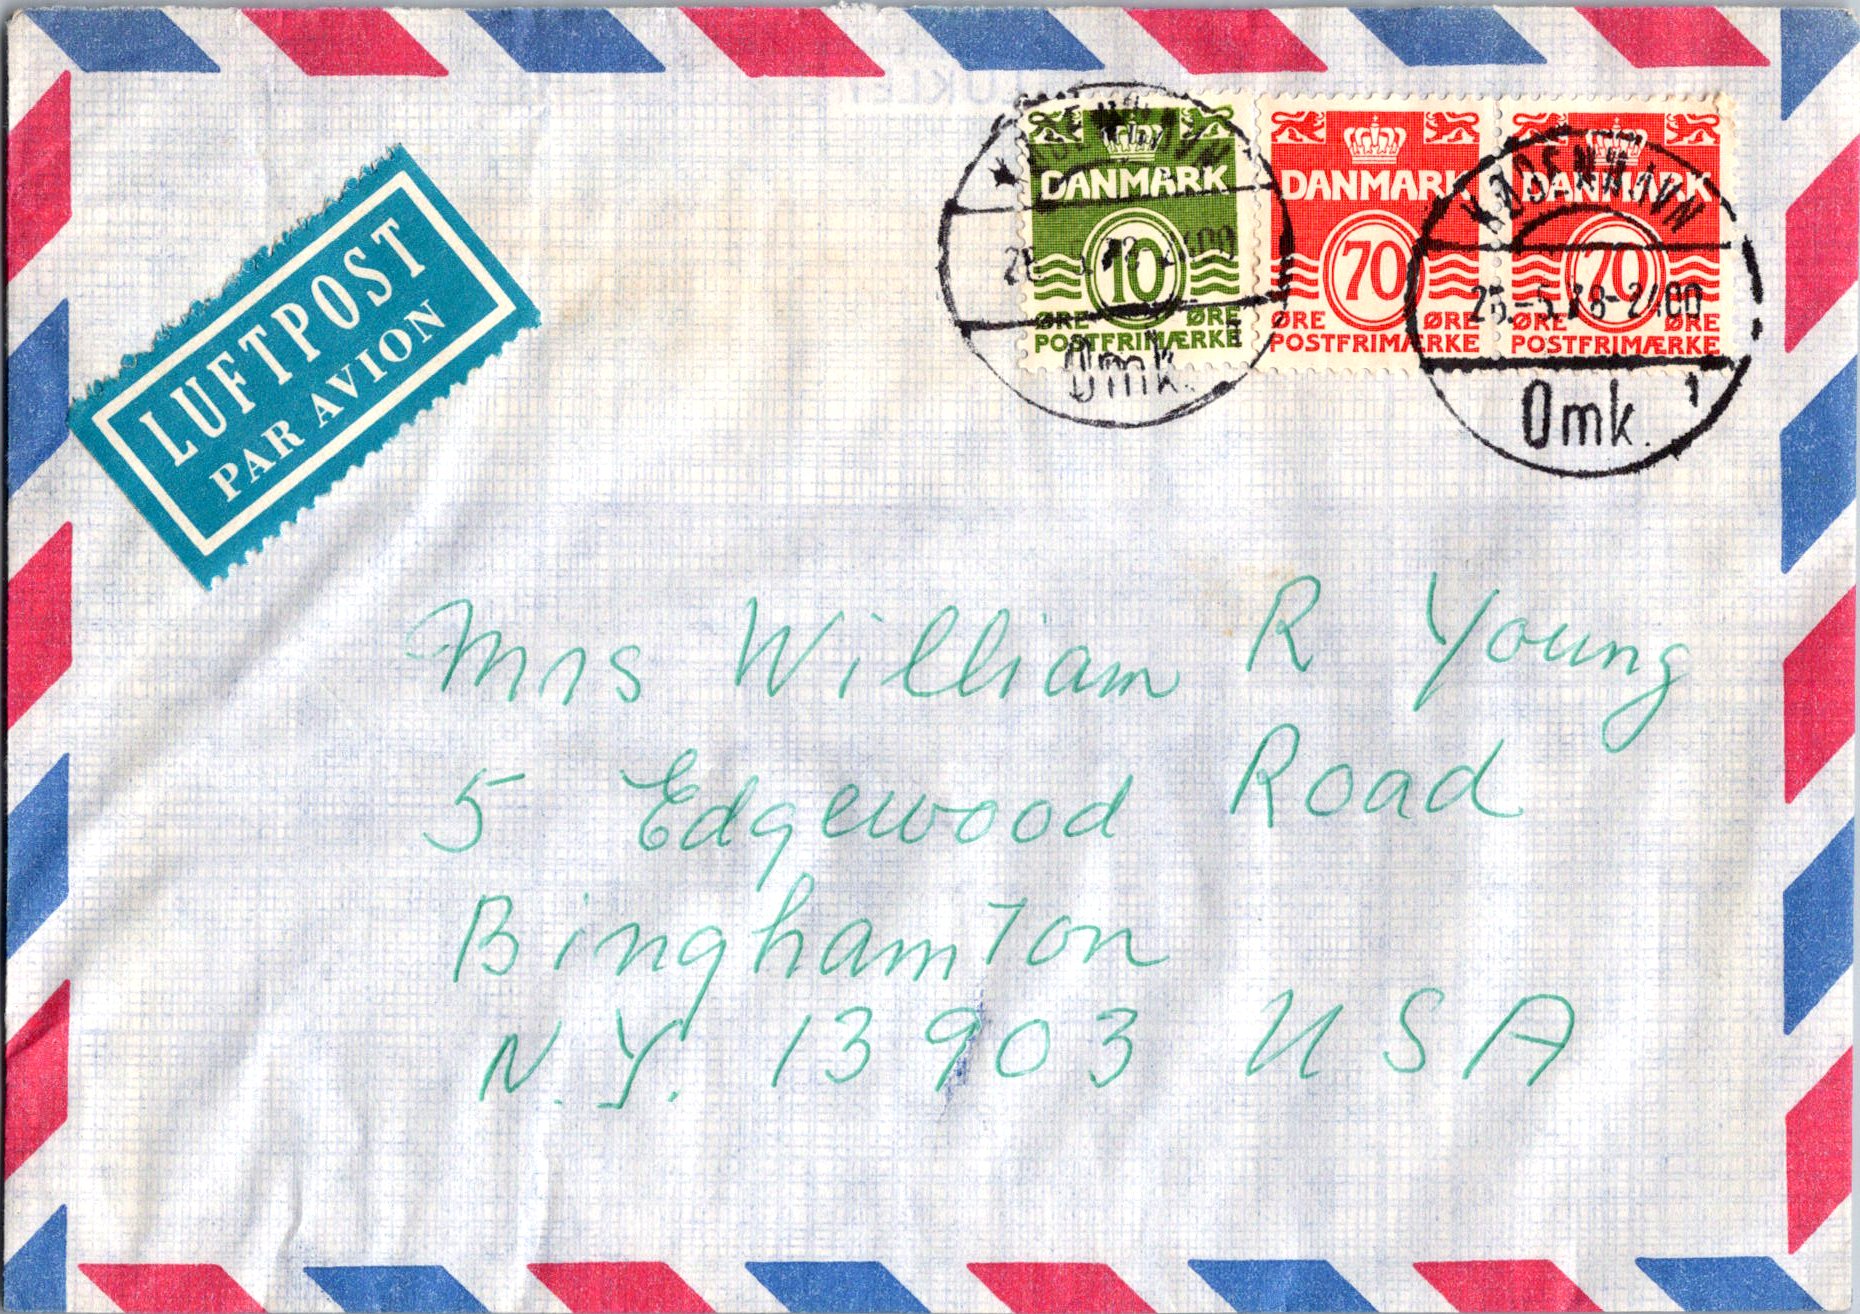 LUFTPOST
PAR AVION
DANMARK
10
ØRE ØRE
POSTFRIMÆRKE
DANMARK
70
ØRE ØRE
POSTFRIMÆRKE
DANMARK
70
ØRE ØRE
POSTFRIMÆRKE
KØBENHAVN
Omk.
KØBENHAVN
Omk. 1
Mrs William R Young
5 Edgewood Road
Binghamton
N.Y. 13903 USA